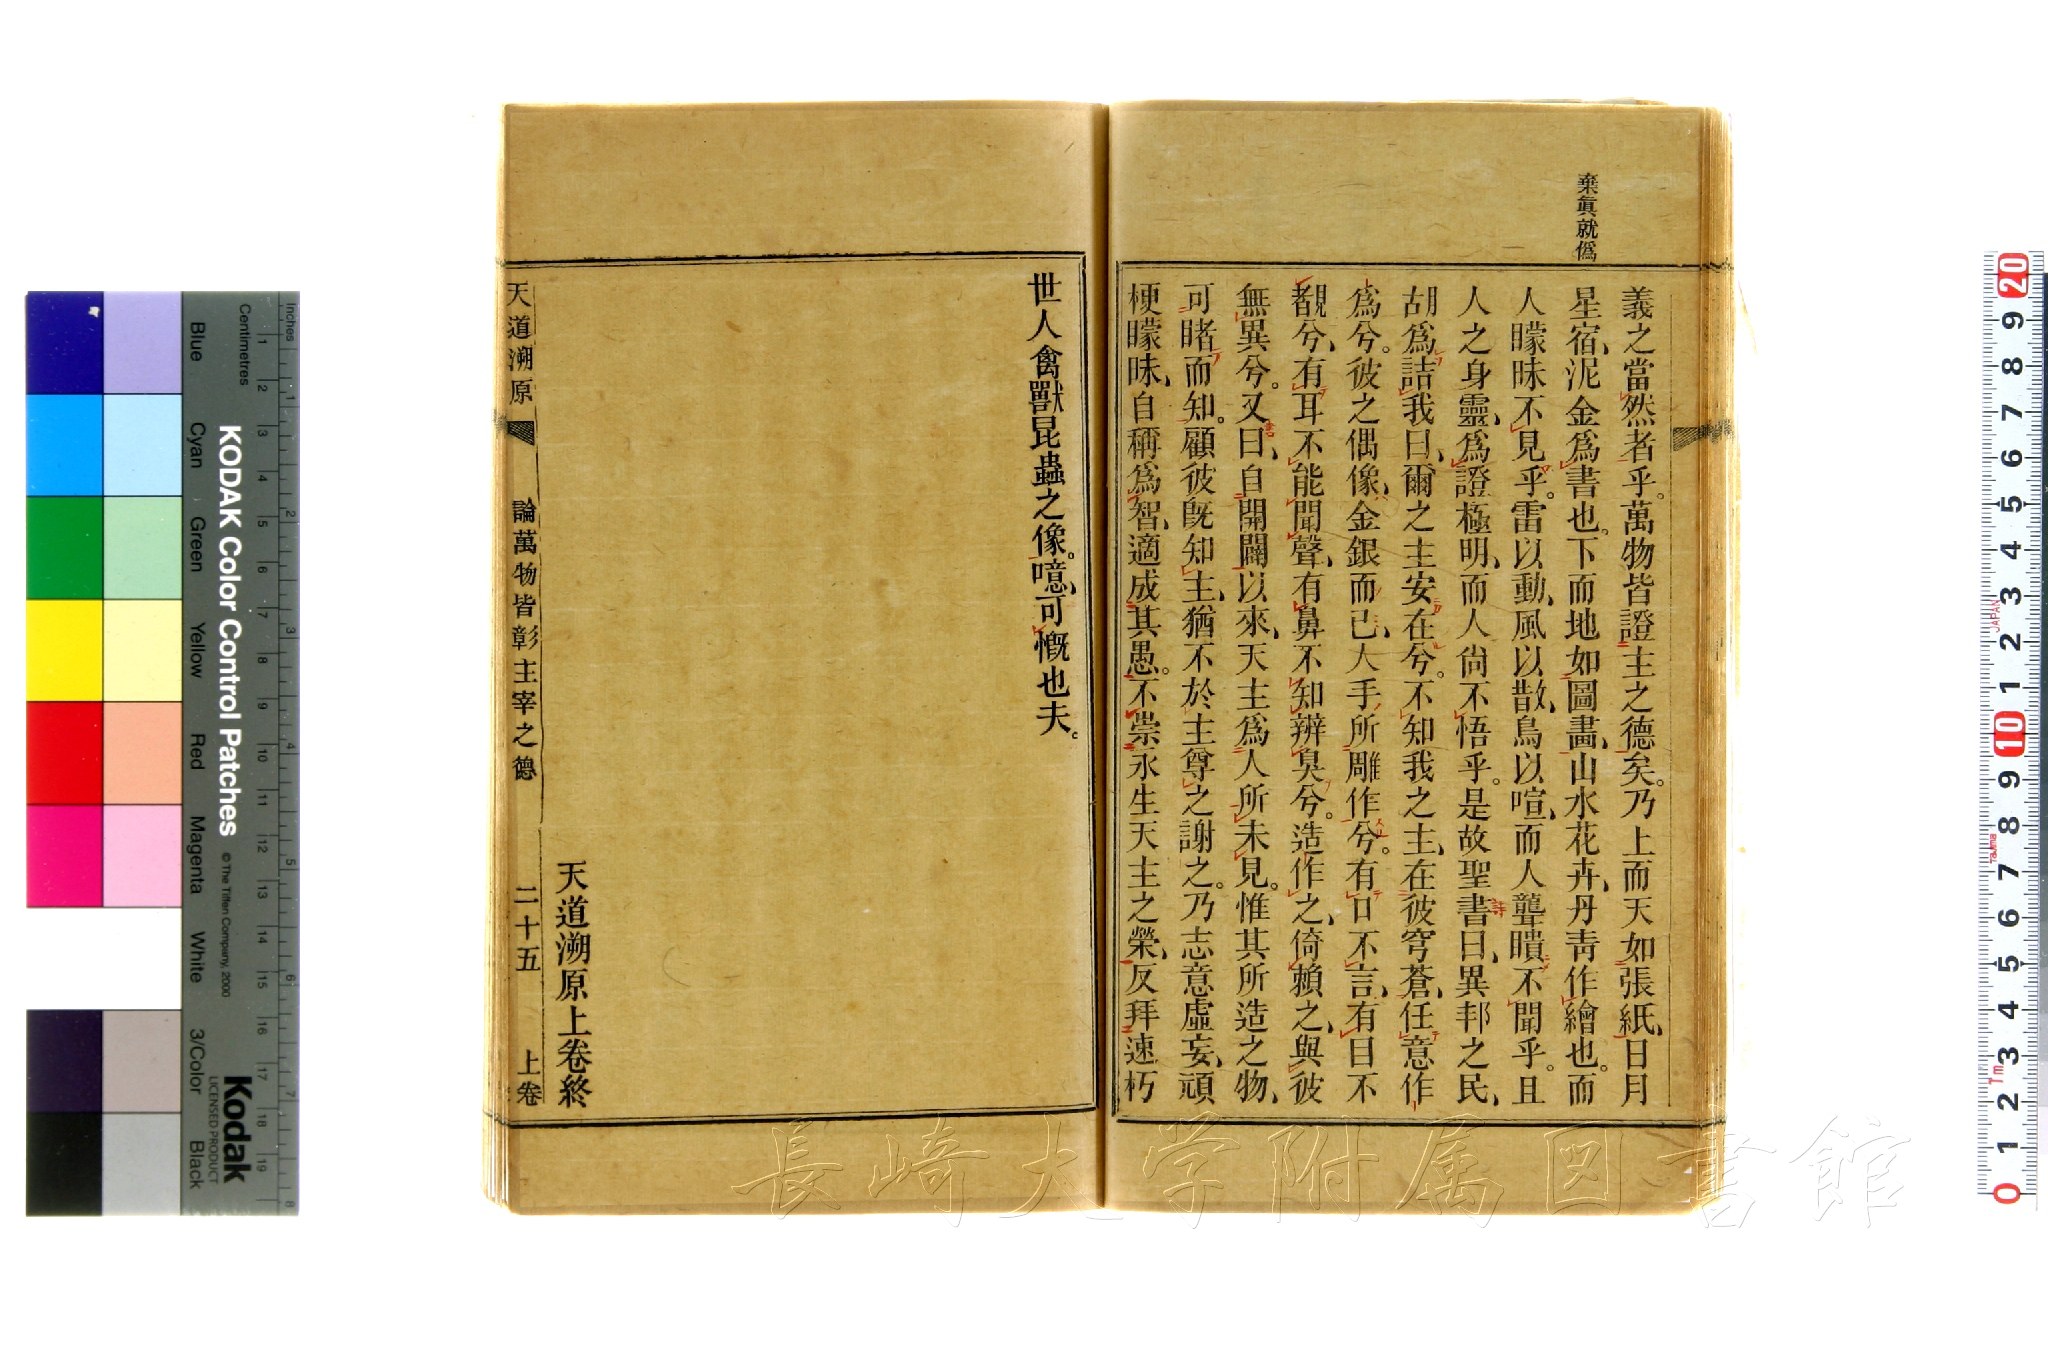 棄眞就僞
義之當然者乎。萬物皆證主之德矣。乃上而天如張紙、日月
星宿、泥金爲書也。下而地如圖畫、山水花卉、丹靑作繪也。而
人矇昧不見乎。雷以動、風以散、鳥以喧、而人聾聵不聞乎。且
人之身靈、爲證極明、而人尙不悟乎。是故聖書曰、異邦之民、
胡爲詰我曰、爾之主安在兮。不知我之主、在彼穹蒼、任意作
爲兮。彼之偶像、金銀而已、人手所雕作兮。有口不言、有目不
覩兮、有耳不能聞聲、有鼻不知辨臭兮。造作之、倚賴之、與彼
無異兮。又曰、自開闢以來、天主爲人所未見。惟其所造之物、
可睹而知。顧彼旣知主、猶不於主尊之謝之。乃志意虛妄、頑
梗矇昧、自稱爲智、適成其愚。不崇永生天主之榮、反拜速朽
世人禽獸昆蟲之像。噫、可慨也夫。
天道溯原上卷終
天道溯原
論萬物皆彰主宰之德
二十五
上卷
長崎大学附属図書館
KODAK Color Control Patches
© The Tiffen Company, 2000
Kodak
LICENSED PRODUCT
Inches
Centimetres
Blue
Cyan
Green
Yellow
Red
Magenta
White
3/Color
Black
1 2 3 4 5 6 7 8 9 10 11 12 13 14 15 16 17 18 19
1 2 3 4 5 6 7 8
20 9 8 7 6 5 4 3 2 1 10 9 8 7 6 5 4 3 2 1 0
JAPAN